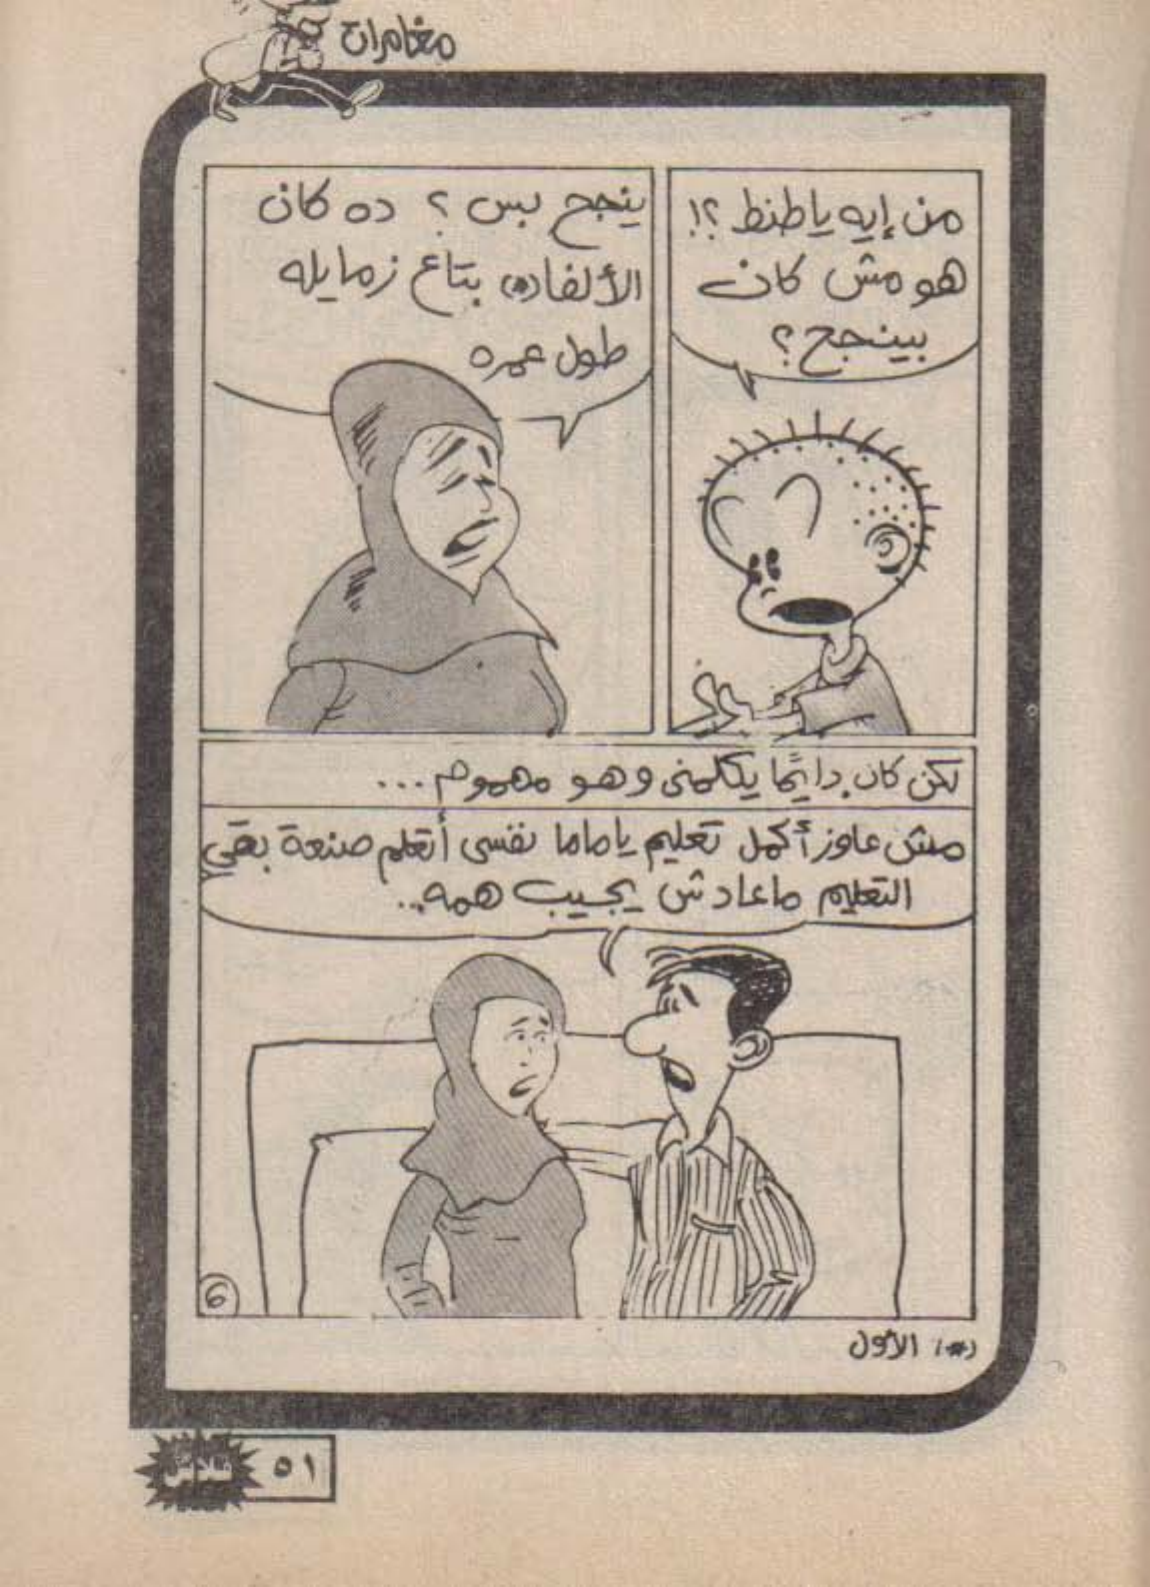 مغامرات
من إيه ياطنط ؟!
هو مش كان
بينجح ؟
ينجح بس ؟ ده كان
الألفا(*) بتاع زمايله
طول عمره
لكن كان دايمًا يكلمنى وهو مهموم...
مش عاوز أكمل تعليم ياماما نفسى أتعلم صنعة بقى
التعليم ماعادش يجيب همه...
6
(*) الأول
٥١
فلاش